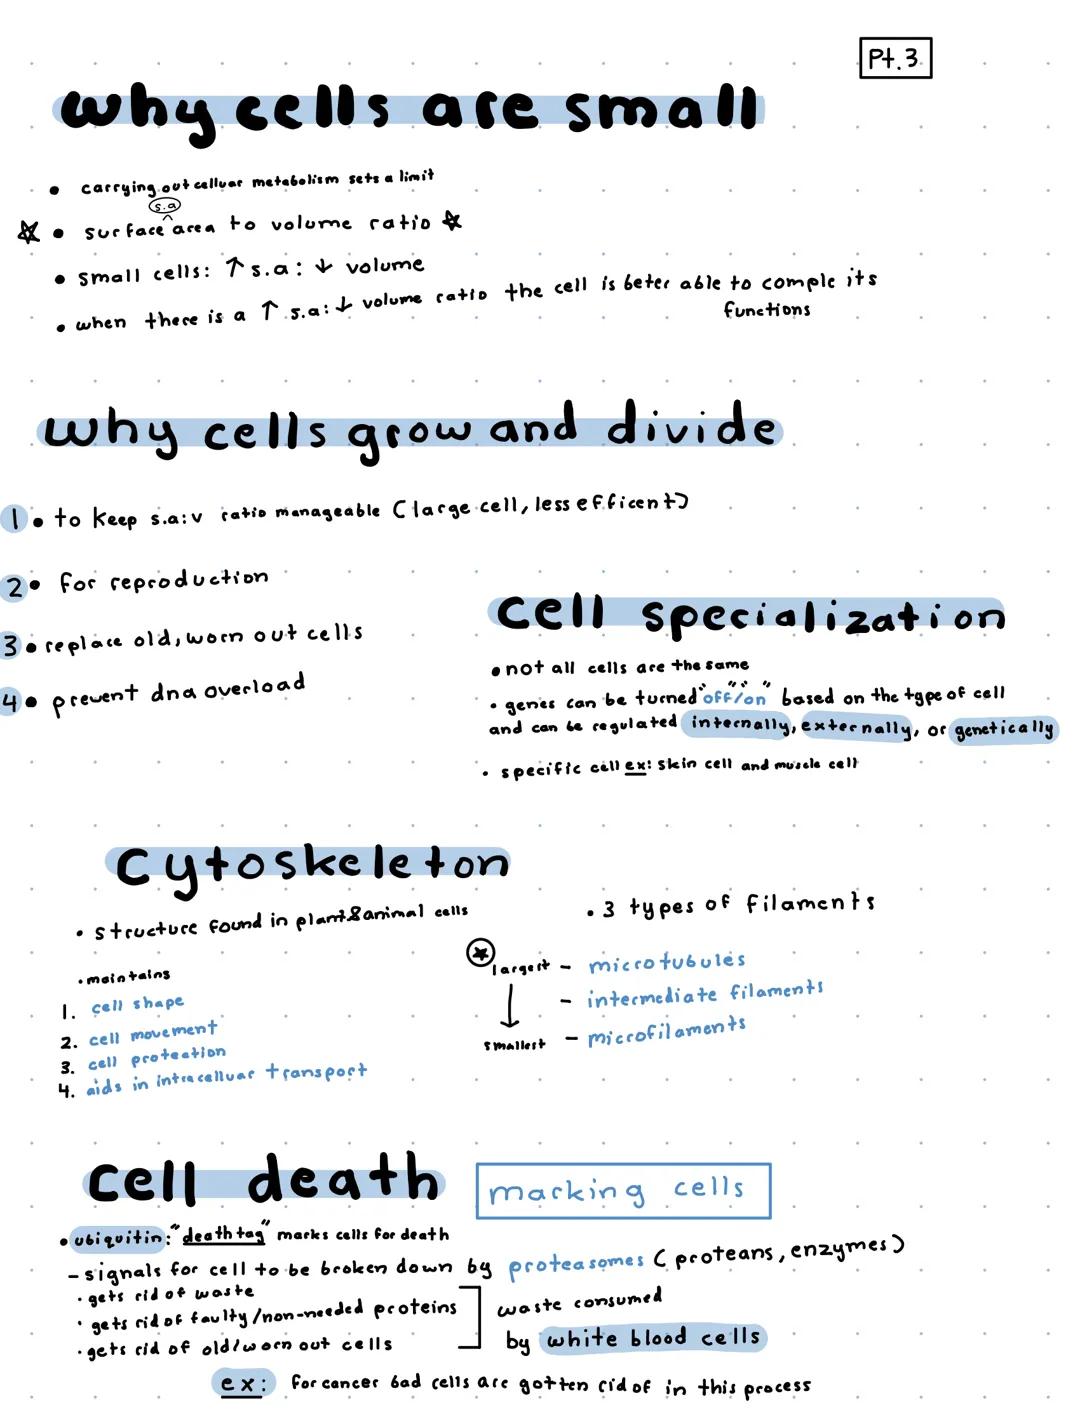 Pt.3
why cells are small
• carrying out celluar metabolism sets a limit
s.a
☆ • surface area to volume ratio ☆
• small cells: ↑ s.a: ↓ volume
• when there is a ↑ s.a: ↓ volume ratio the cell is beter able to comple its
functions
why cells grow and divide
1 • to keep s.a:v ratio manageable (large cell, less efficent)
2 • for reproduction
3 • replace old, worn out cells
4 • prevent dna overload
cell specialization
• not all cells are the same
• genes can be turned "off"/"on" based on the type of cell
and can be regulated internally, externally, or genetically
• specific cell ex: skin cell and muscle cell
cytoskeleton
• structure found in plant & animal cells
• maintains
1. cell shape
2. cell movement
3. cell protection
4. aids in intracelluar transport
• 3 types of filaments
☆ largest – microtubules
↓ – intermediate filaments
smallest – microfilaments
cell death
marking cells
• ubiquitin: "death tag" marks cells for death
– signals for cell to be broken down by proteasomes (proteans, enzymes)
• gets rid of waste
• gets rid of faulty/non-needed proteins
• gets rid of old/worn out cells
waste consumed
by white blood cells
ex: for cancer bad cells are gotten rid of in this process